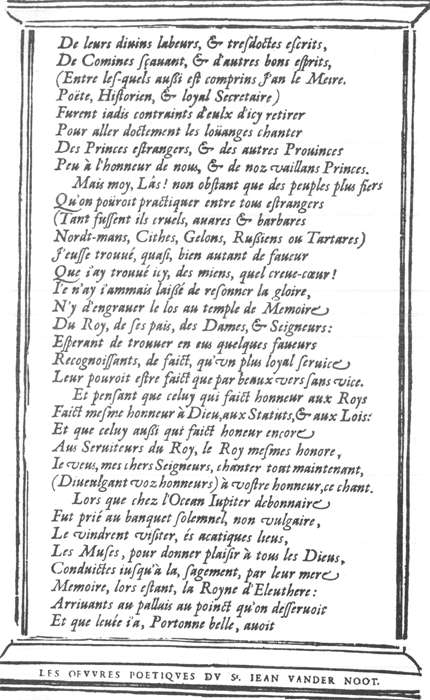 De leurs diuins labeurs, & tresdoctes escrits,
De Comines sçauant, & d'autres bons esprits,
(Entre les-quels aussi est comprins Jan le Meire.
Poëte, Historien, & loyal Secretaire)
Furent iadis contraints d'eulx d'icy retirer
Pour aller doctement les loüanges chanter
Des Princes estrangers, & des autres Prouinces
Peu à l'honneur de nous, & de noz vaillans Princes.
Mais moy, Lâs! non obstant que des peuples plus fiers
Qu'on poüroit practiquer entre tous estrangers
(Tant fussent ils cruels, auares & barbares
Nordt-mans, Cithes, Gelons, Russiens ou Tartares)
J'eusse trouué, quasi, bien autant de faueur
Que i'ay trouué icy, des miens, quel creue-cœur!
Ie n'ay i'ammais laissé de resonner la gloire,
N'y d'engrauer le los au temple de Memoire
Du Roy, de ses païs, des Dames, & Seigneurs:
Esperant de trouuer en eus quelques faueurs
Recognoissants, de faict, qu'vn plus loyal seruice
Leur pouroit estre faict que par beaux vers sans vice.
Et pensant que celuy qui faict honneur aux Roys
Faict mesme honneur à Dieu, aux Statuts, & aux Lois:
Et que celuy aussi qui faict honeur encore
Aus Seruiteurs du Roy, le Roy mesmes honore,
Ie veus, mes chers Seigneurs, chanter tout maintenant,
(Diueulgant voz honneurs) à vostre honneur, ce chant.
Lors que chez l'Ocean Iupiter debonnaire
Fut prié au banquet solemnel, non vulgaire,
Le vindrent visiter, és acatiques lieus,
Les Muses, pour donner plaisir à tous les Dieus,
Conduictes iusqu'à la, sagement, par leur mere
Memoire, lors estant, la Royne d'Eleuthere:
Arriuants au pallais au poinct qu'on desseruoit
Et que leuée i'a, Portonne belle, auoit
LES OEVVRES POETIQVES DV Sr. IEAN VANDER NOOT.